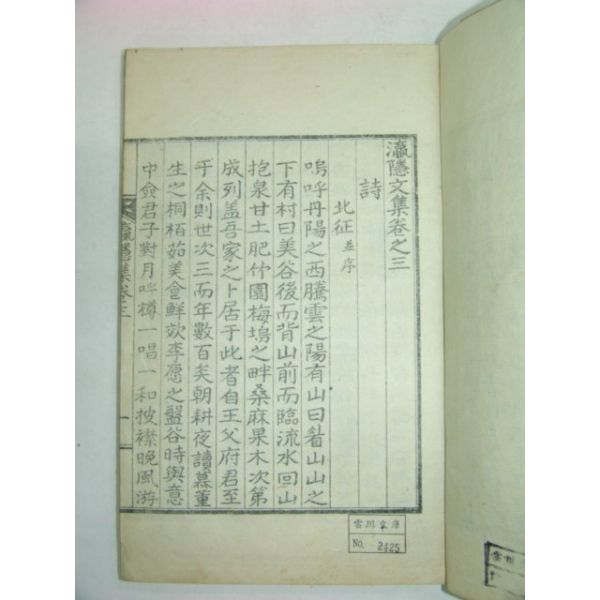 瀛隱文集卷之三
詩
北征 並序
嗚呼丹陽之西騰雲之陽有山曰看山山之
下有村曰美谷後而背山前而臨流水回山
抱泉甘土肥竹園梅塢之畔桑麻果木次第
成列盖吾家之卜居于此者自王父府君至
于余則世次三而年數百矣朝耕夜讀慕董
生之桐栢茹美食鮮效李愿之盤谷時與意
中僉君子對月呼樽一唱一和披襟晚風游
瀛隱集卷之三
一
雲川文庫
No. 2425